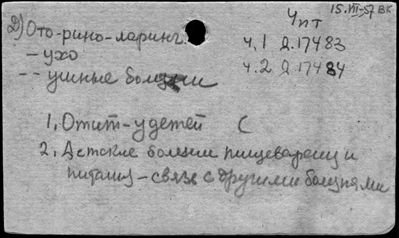 15.VII-57 ВК
Чпт
2) Ото-рино-ларинг.
ч.1 Д.17483
- ухо
ч.2 Д.17484
-- ушные болезни
1. Отит - у детей С
2. Детские болезни пищеварениу и
питаниу - связь с другими болезнями